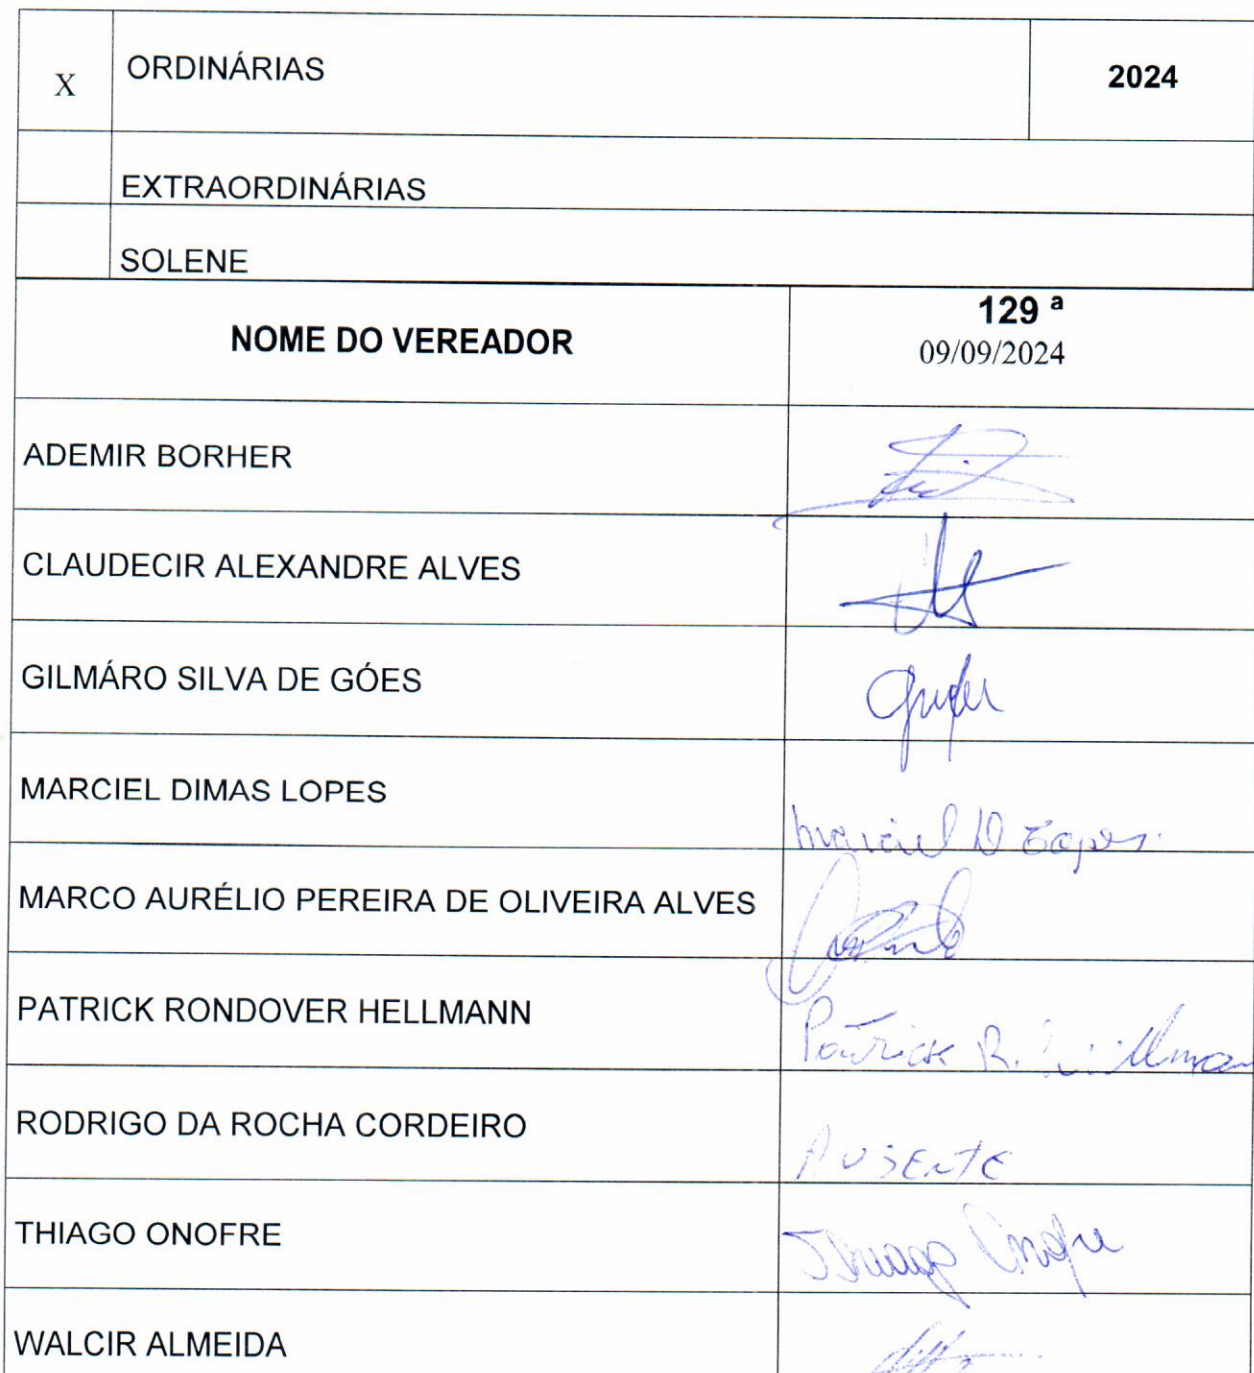 X ORDINÁRIAS 2024
EXTRAORDINÁRIAS
SOLENE
NOME DO VEREADOR 129 ª
09/09/2024
ADEMIR BORHER
CLAUDECIR ALEXANDRE ALVES
GILMÁRO SILVA DE GÓES
MARCIEL DIMAS LOPES
Marciel D Lopes
MARCO AURÉLIO PEREIRA DE OLIVEIRA ALVES
PATRICK RONDOVER HELLMANN
Patrick R.
RODRIGO DA ROCHA CORDEIRO
AUSENTE
THIAGO ONOFRE
Thiago Onofre
WALCIR ALMEIDA